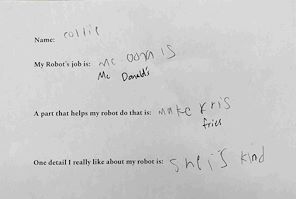 Name: collie
My Robot's job is: mc donis
Mc Donald's
A part that helps my robot do that is: make kris
fries
One detail I really like about my robot is: shei's kind